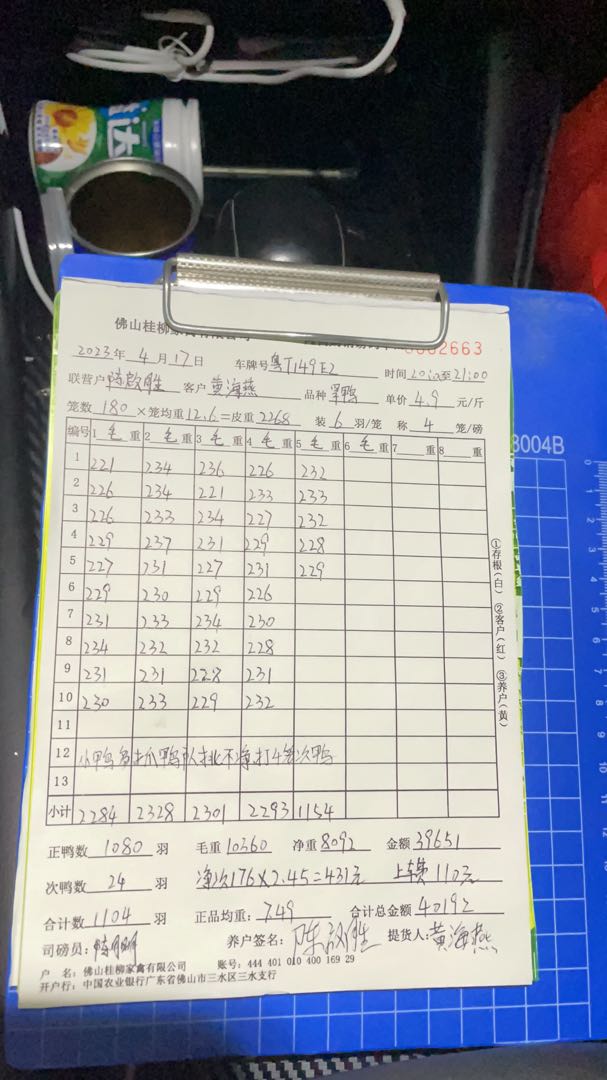 达
佛山桂柳家禽有限公司
0002663
2023年 4月17日 车牌号 粤T149E2 时间 20:00至21:00
联营户 陈啟胜 客户 黄海燕 品种 单价 4.9 元/斤
笼数 180 ×笼均重 12.6 =皮重 2268 装 6 羽/笼 称 4 笼/磅
编号 1 毛 重 2 毛 重 3 毛 重 4 毛 重 5 毛 重 6 毛 重 7 重 8 重
1 221 234 236 226 232
2 226 234 221 233 233
3 226 233 234 227 232
4 229 237 231 229 228
5 227 231 227 231 229
6 229 230 229 226
7 231 233 234 230
8 234 232 232 228
9 231 231 228 231
10 230 233 229 232
11
12 小鸭多抓鸭队挑不净,打4笼次鸭
13
小计 2284 2328 2301 2293 1154
正鸭数 1080 羽 毛重 10360 净重 8092 金额 39651
次鸭数 24 羽 净次176×2.45=431元 上车费110元
合计数 1104 羽 正品均重: 7.49 合计总金额 40192
司磅员: 养户签名: 陈啟胜 提货人: 黄海燕
户 名: 佛山桂柳家禽有限公司 账号: 444 401 010 400 169 29
开户行: 中国农业银行广东省佛山市三水区三水支行
①存根(白) ②客户(红) ③养户(黄)
8004B